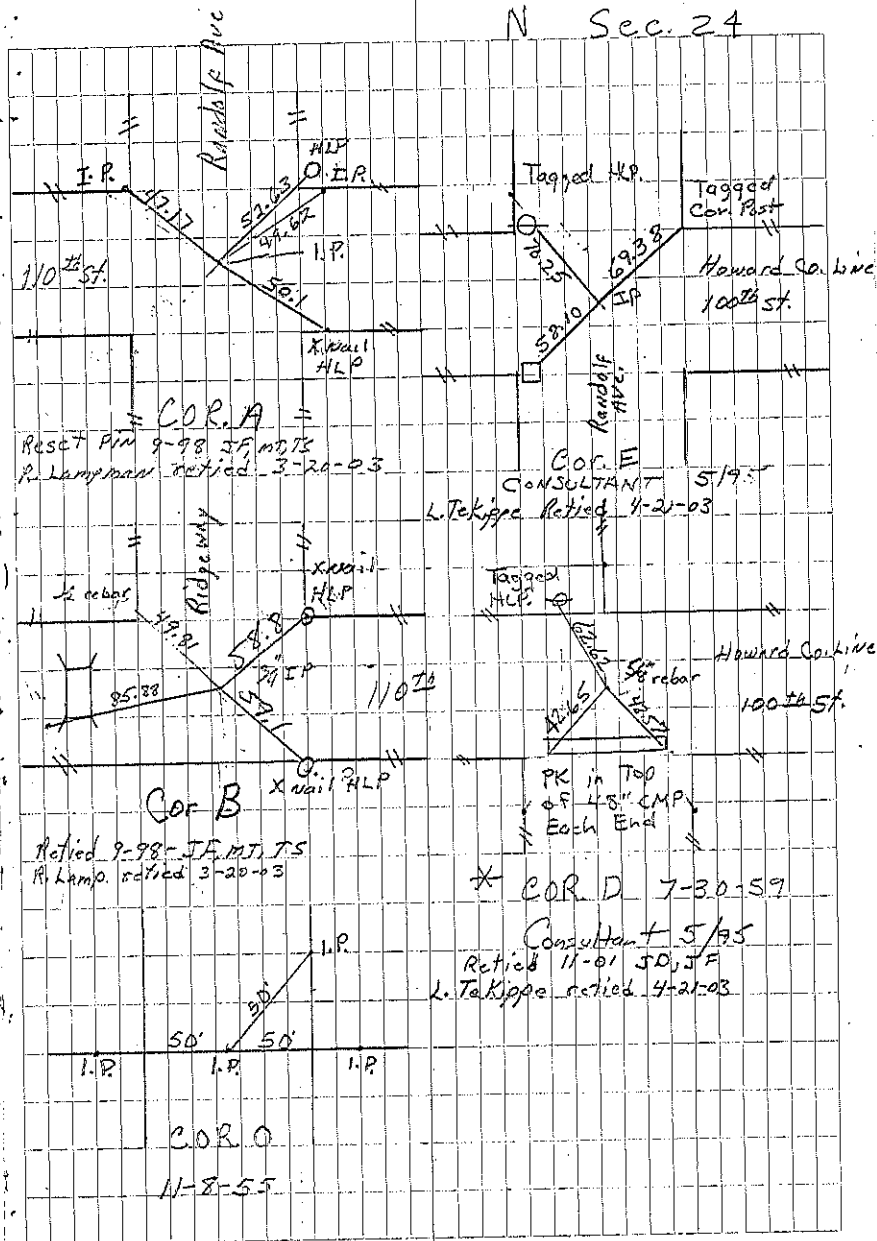 N Sec. 24
Randolf Ave
HLP
I.P.
I.P.
47.17
52.63
49.62
I.P.
110th St.
50.1
X Nail
HLP
COR. A
Reset Pin 9-98 JF, MJ, TS
R. Lampman retied 3-20-03
Tagged HLP.
Tagged
Cor. Post
69.38
Howard Co. Line
IP
100th St.
58.10
Randolf
Ave.
Cor. E
CONSULTANT 5/95
L. TeKippe Retied 4-21-03
Ridgeway
X nail
HLP
1/2 rebar
49.81
58.8
3/4" IP
110th
85.88
57.1
X nail HLP
Cor B
Retied 9-98-JF, MJ, TS
R. Lamp. retied 3-20-03
Tagged
HLP.
62.62
5/8" rebar
Howard Co. Line
100th St.
42.65
PK in Top
of 48" CMP
Each End
* COR. D 7-30-59
Consultant 5/95
Retied 11-01 JD, JF
L. TeKippe retied 4-21-03
I.P.
50'
50' 50'
I.P. I.P. I.P.
COR O
11-8-55